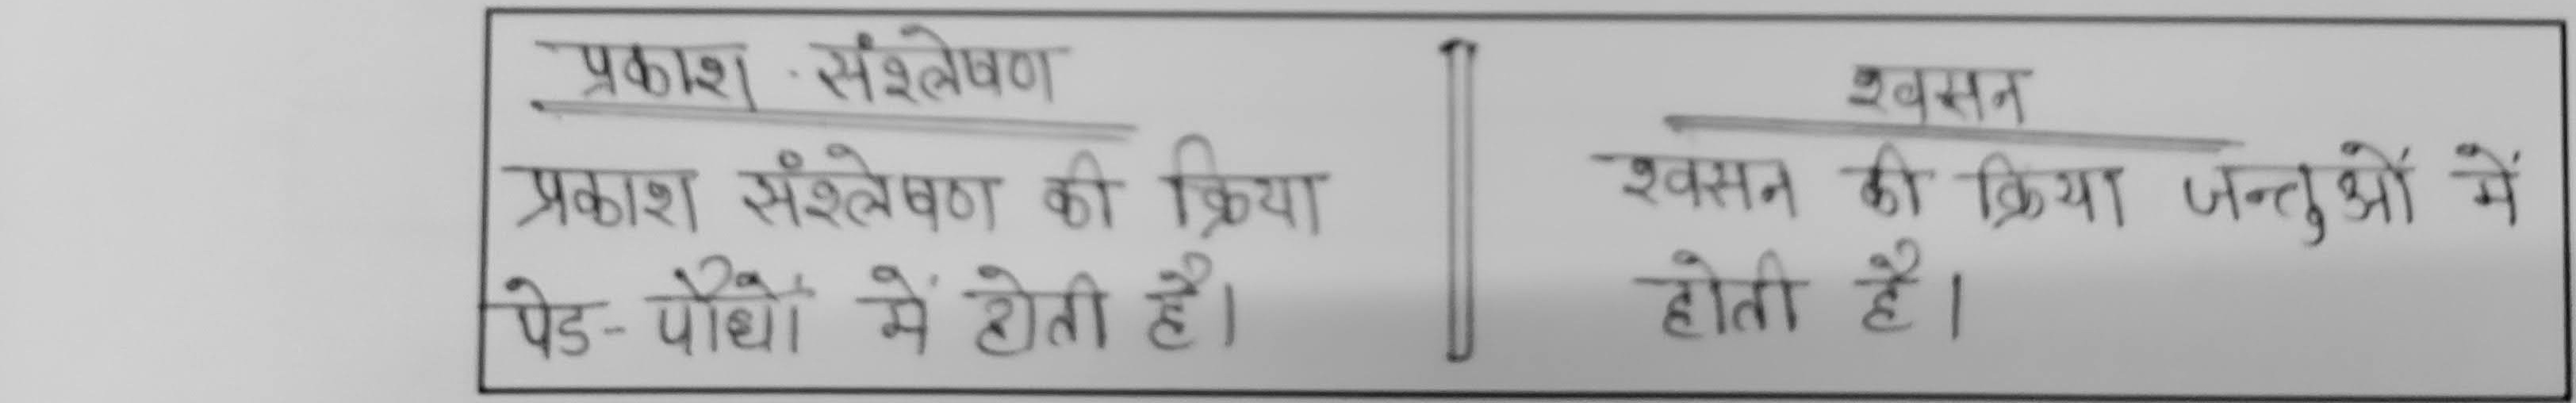 प्रकाश संश्लेषण
प्रकाश संश्लेषण की क्रिया
पेड-पौधों में होती है।
श्वसन
श्वसन की क्रिया जन्तुओं में
होती है।